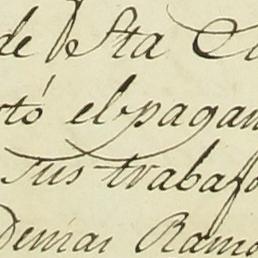 de Sta
tó el pagam
sus trabajo
Demas Ramo